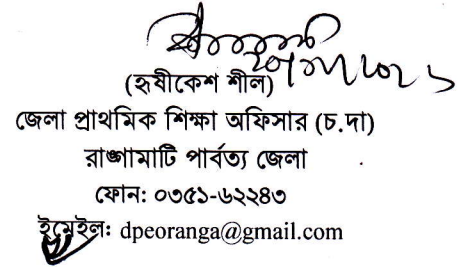 (হৃষীকেশ শীল)
জেলা প্রাথমিক শিক্ষা অফিসার (চ.দা)
রাঙ্গামাটি পার্বত্য জেলা
ফোন: ০৩৫১-৬২২৪৩
ইমেইল: dpeoranga@gmail.com